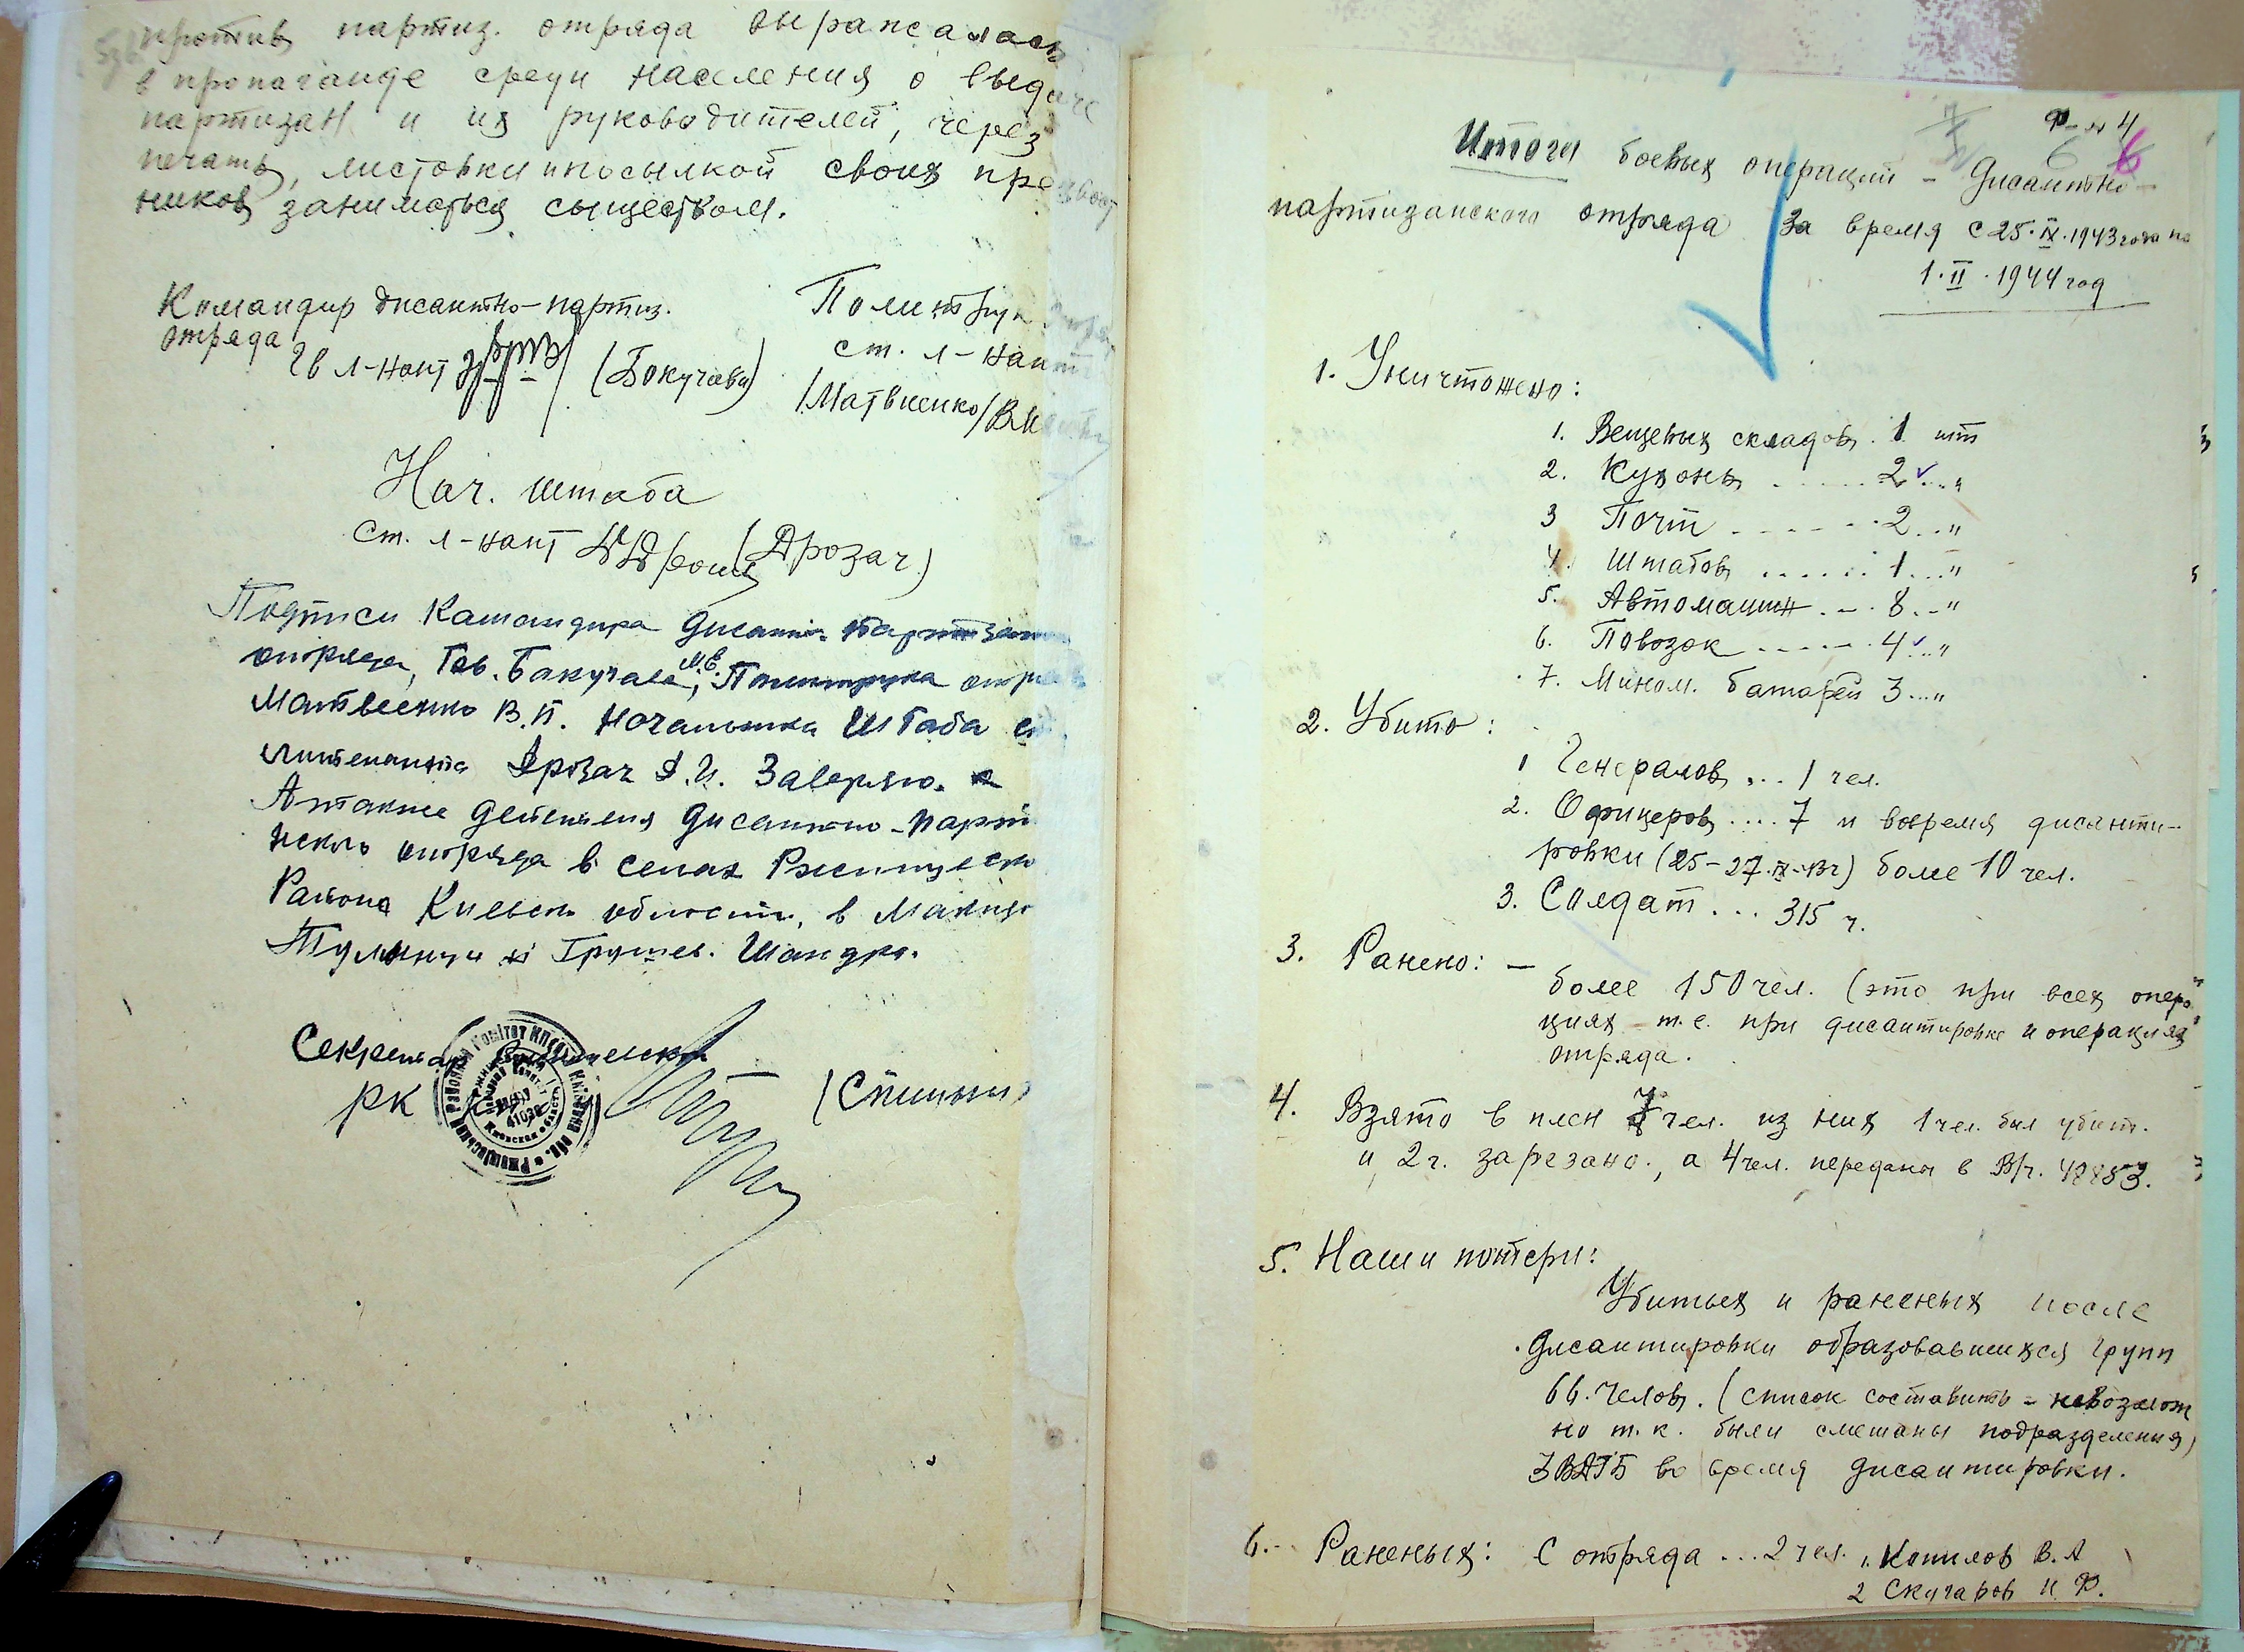 против партиз. отряда выражалась
в пропаганде среди населения о выдаче
партизан и их руководителей, через
печать, листовки и посылкой своих
ников заниматься сыществом.
Командир дисантно-партиз.
отряда
Гв л-нант (Бокучава)
Политрук
ст. л-нант
/Матвиенко/
Нач. штаба
ст. л-нант (Дрозач)
Подписи Камандира дисантн. партизан
отряда, Тов. Бакучава М.В., Политрука отряда
Матвеенко В.П. Начальника Штаба ст.
литенанта Дрозач Д.И. Заверяю.
А также действия дисантно-парти
нского отряда в селах Ржищевско
Района Киевск области, в Македо
Тулинци и Грушев. Шандра.
Секретар Ржищевского
РК
Ф-а 4
6
Итоги боевых операций - Дисантно-
партизанского отряда за время с 25.IX.1943 года по
1.II.1944 год
1. Уничтожено:
1. Вещевых складов . 1 шт
2. Кухонь ..... 2 ... "
3 Почт ...... 2 .. "
4. Штабов ...... 1 ... "
5. Автомашин ... 8 .. "
6. Повозок ...... 4 .. "
7. Мином. батарей 3 ... "
2. Убито:
1 Генералов ... 1 чел.
2. Офицеров .... 7 и вовремя дисанти-
ровки (25-27.IX-43г) более 10 чел.
3. Солдат ... 315 ч.
3. Ранено: -
более 150 чел. (это при всех опера
циях - т.е. при дисантировке и операциях
отряда.
4. Взято в плен 7 чел. из них 1 чел. был убит.
и 2 ч. зарезано., а 4 чел. переданы в В/ч. 48853.
5. Наши потери:
Убитых и раненых после
дисантировки образовавшихся групп
66. Челов. (список составить - невозмож
но т.к. были смешаны подразделения)
3ВДГБ во время дисантировки.
6. Раненых: С отряда ... 2 чел. 1. Копилов В.А
2 Скучаров И.Ф.